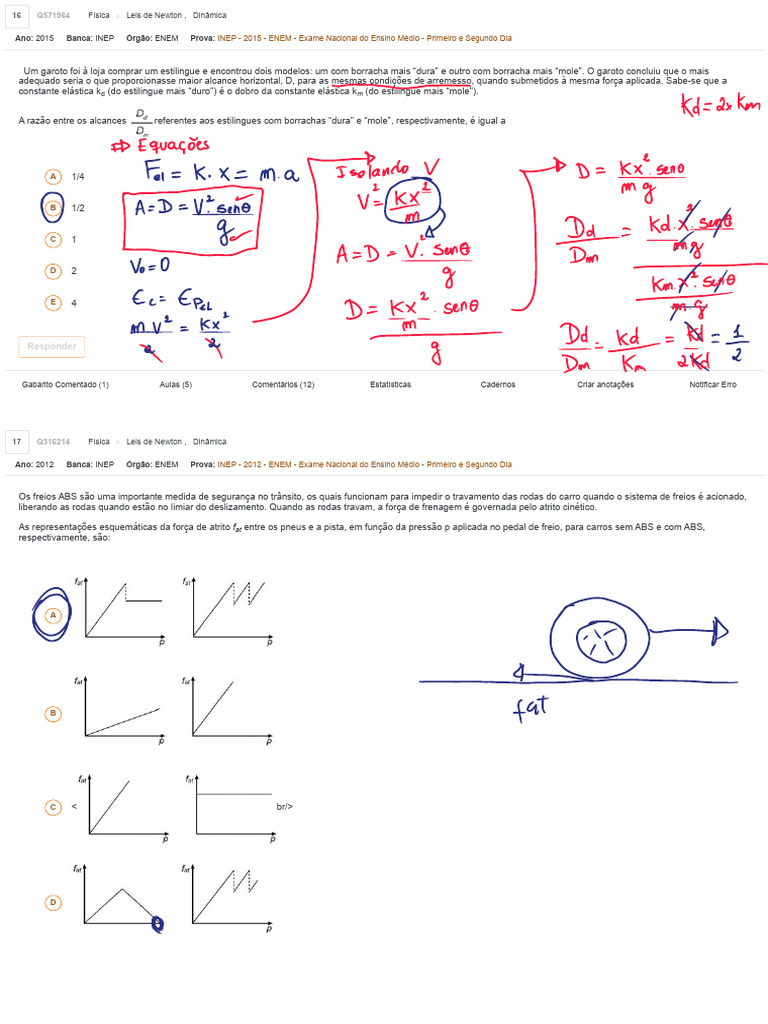 16 Q571964 Física > Leis de Newton , Dinâmica
Ano: 2015 Banca: INEP Órgão: ENEM Prova: INEP - 2015 - ENEM - Exame Nacional do Ensino Médio - Primeiro e Segundo Dia
Um garoto foi à loja comprar um estilingue e encontrou dois modelos: um com borracha mais "dura" e outro com borracha mais "mole". O garoto concluiu que o mais
adequado seria o que proporcionasse maior alcance horizontal, D, para as mesmas condições de arremesso, quando submetidos à mesma força aplicada. Sabe-se que a
constante elástica kd (do estilingue mais "duro") é o dobro da constante elástica km (do estilingue mais "mole").
Kd = 2x Km
A razão entre os alcances Dd/Dm referentes aos estilingues com borrachas "dura" e "mole", respectivamente, é igual a
⇒ Equações
A 1/4
B 1/2
C 1
D 2
E 4
Fel = K. X = m. a
A = D = V². senθ / g
V₀ = 0
Ec = EPEL
m V² / 2 = Kx² / 2
Isolando V
V² = Kx² / m
A = D = V². senθ / g
D = Kx² / m . senθ / g
D = Kx². senθ / m g
Dd / Dm = Kd. x². senθ / mg / Km. x². senθ / mg
Dd / Dm = Kd / Km = Kd / 2Kd = 1 / 2
Responder
Gabarito Comentado (1) Aulas (5) Comentários (12) Estatísticas Cadernos Criar anotações Notificar Erro
17 Q316214 Física > Leis de Newton , Dinâmica
Ano: 2012 Banca: INEP Órgão: ENEM Prova: INEP - 2012 - ENEM - Exame Nacional do Ensino Médio - Primeiro e Segundo Dia
Os freios ABS são uma importante medida de segurança no trânsito, os quais funcionam para impedir o travamento das rodas do carro quando o sistema de freios é acionado,
liberando as rodas quando estão no limiar do deslizamento. Quando as rodas travam, a força de frenagem é governada pelo atrito cinético.
As representações esquemáticas da força de atrito fat entre os pneus e a pista, em função da pressão p aplicada no pedal de freio, para carros sem ABS e com ABS,
respectivamente, são:
A fat p fat p
fat
B fat p fat p
C < fat p fat p br/>
D fat p fat p